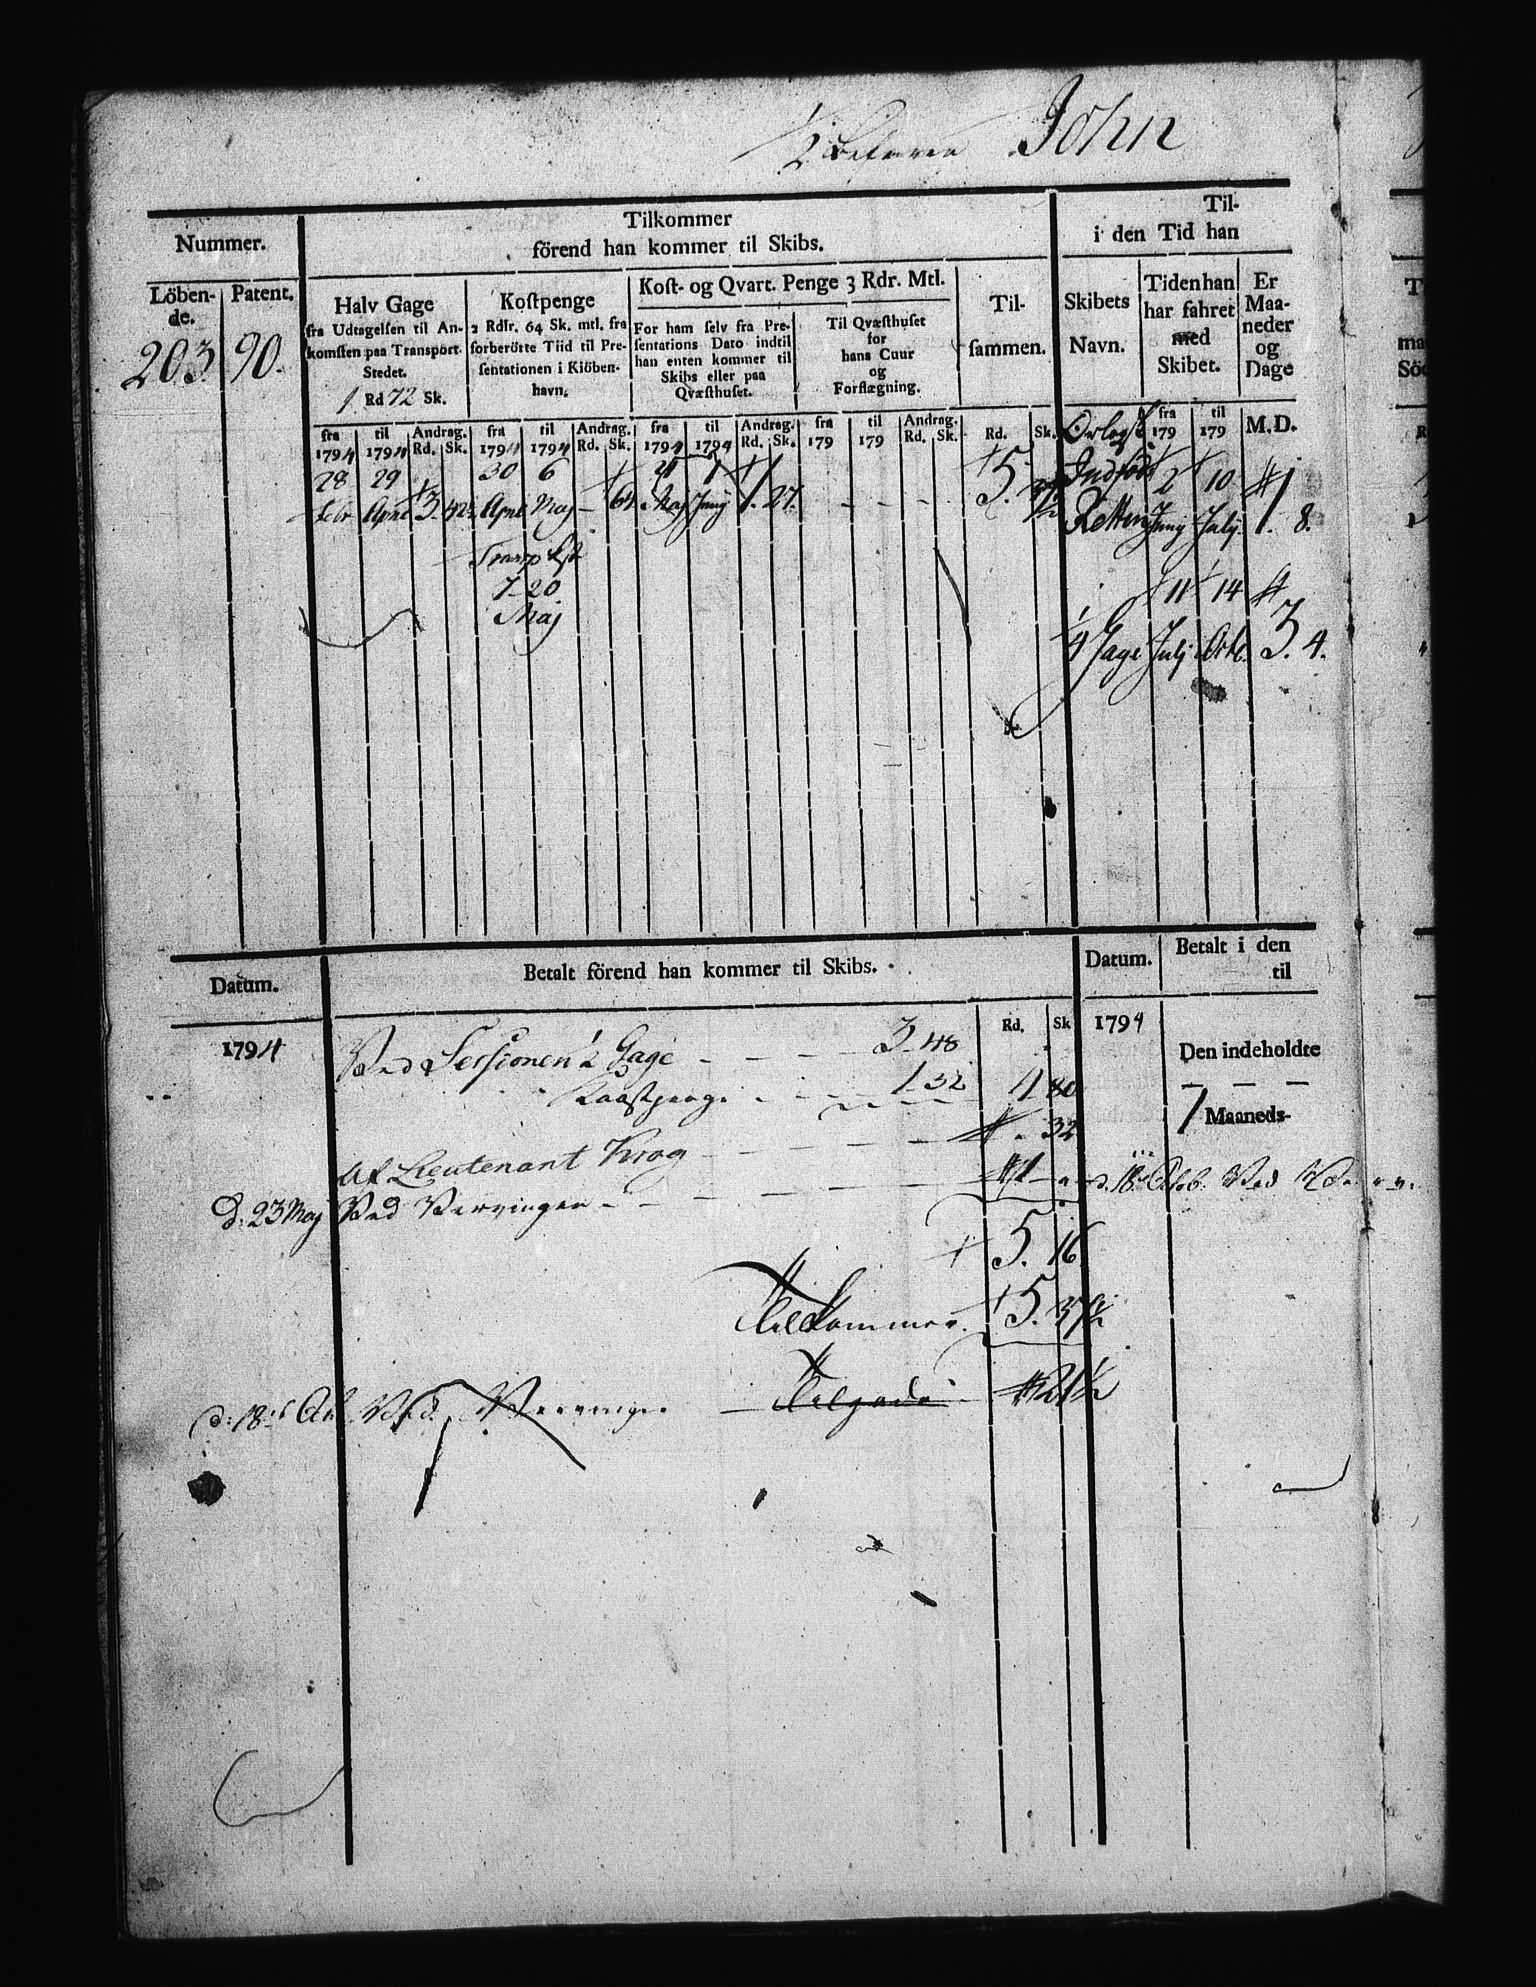 ½ Befaren John
Nummer.
Tilkommer
förend han kommer til Skibs.
Til-
i den Tid han
Löben-
de.
Patent.
Halv Gage
fra Udtagelsen til An-
komsten paa Transport-
Stedet.
1 Rd 72 Sk.
Kostpenge
2 Rdlr. 64 Sk. mtl. fra
forberörte Tiid til Pre-
sentationen i Kiöben-
havn.
Kost- og Qvart. Penge 3 Rdr. Mtl.
For ham selv fra Pre-
sentations Dato indtil
han enten kommer til
Skibs eller paa
Qvæsthuset.
Til Qvæsthuset
for
hans Cuur
og
Forflægning.
Til-
sammen.
Skibets
Navn.
Tiden han
har fahret
med
Skibet.
Er
Maa-
neder
og
Dage
203. 90.
fra 1794 til 1794 Andrag. Rd. Sk. fra 1794 til 1794 Andrag. Rd. Sk. fra 1794 til 1794 Andrag. Rd. Sk. fra 179 til 179 Andrag. Rd. Sk. Rd. Sk. fra 179 til 179 M. D.
Orlogs
28 29 30 6 21 1 5. 2 10
Febr April 3. 42½ April Maj 64. Maj Juny 1. 27. 37½ Juny July 1. 8.
Transp
7 20
Maj
11 14
Gage July Octb. 3. 4.
Datum.
Betalt förend han kommer til Skibs.
Datum.
Betalt i den
til
1794
Rd. Sk
1794
Den indeholdte
Ved Sessionen ½ Gage 3. 48
Kaastpenge 1. 32 4 80
1 Maaneds-
Af Lieutenant Krog . 32
d: 23 Maj Ved Vervingen
d. 18 Octob. Ved
5. 16
Tilkommer. 5. 37½
Tilgode 21½
d: 18